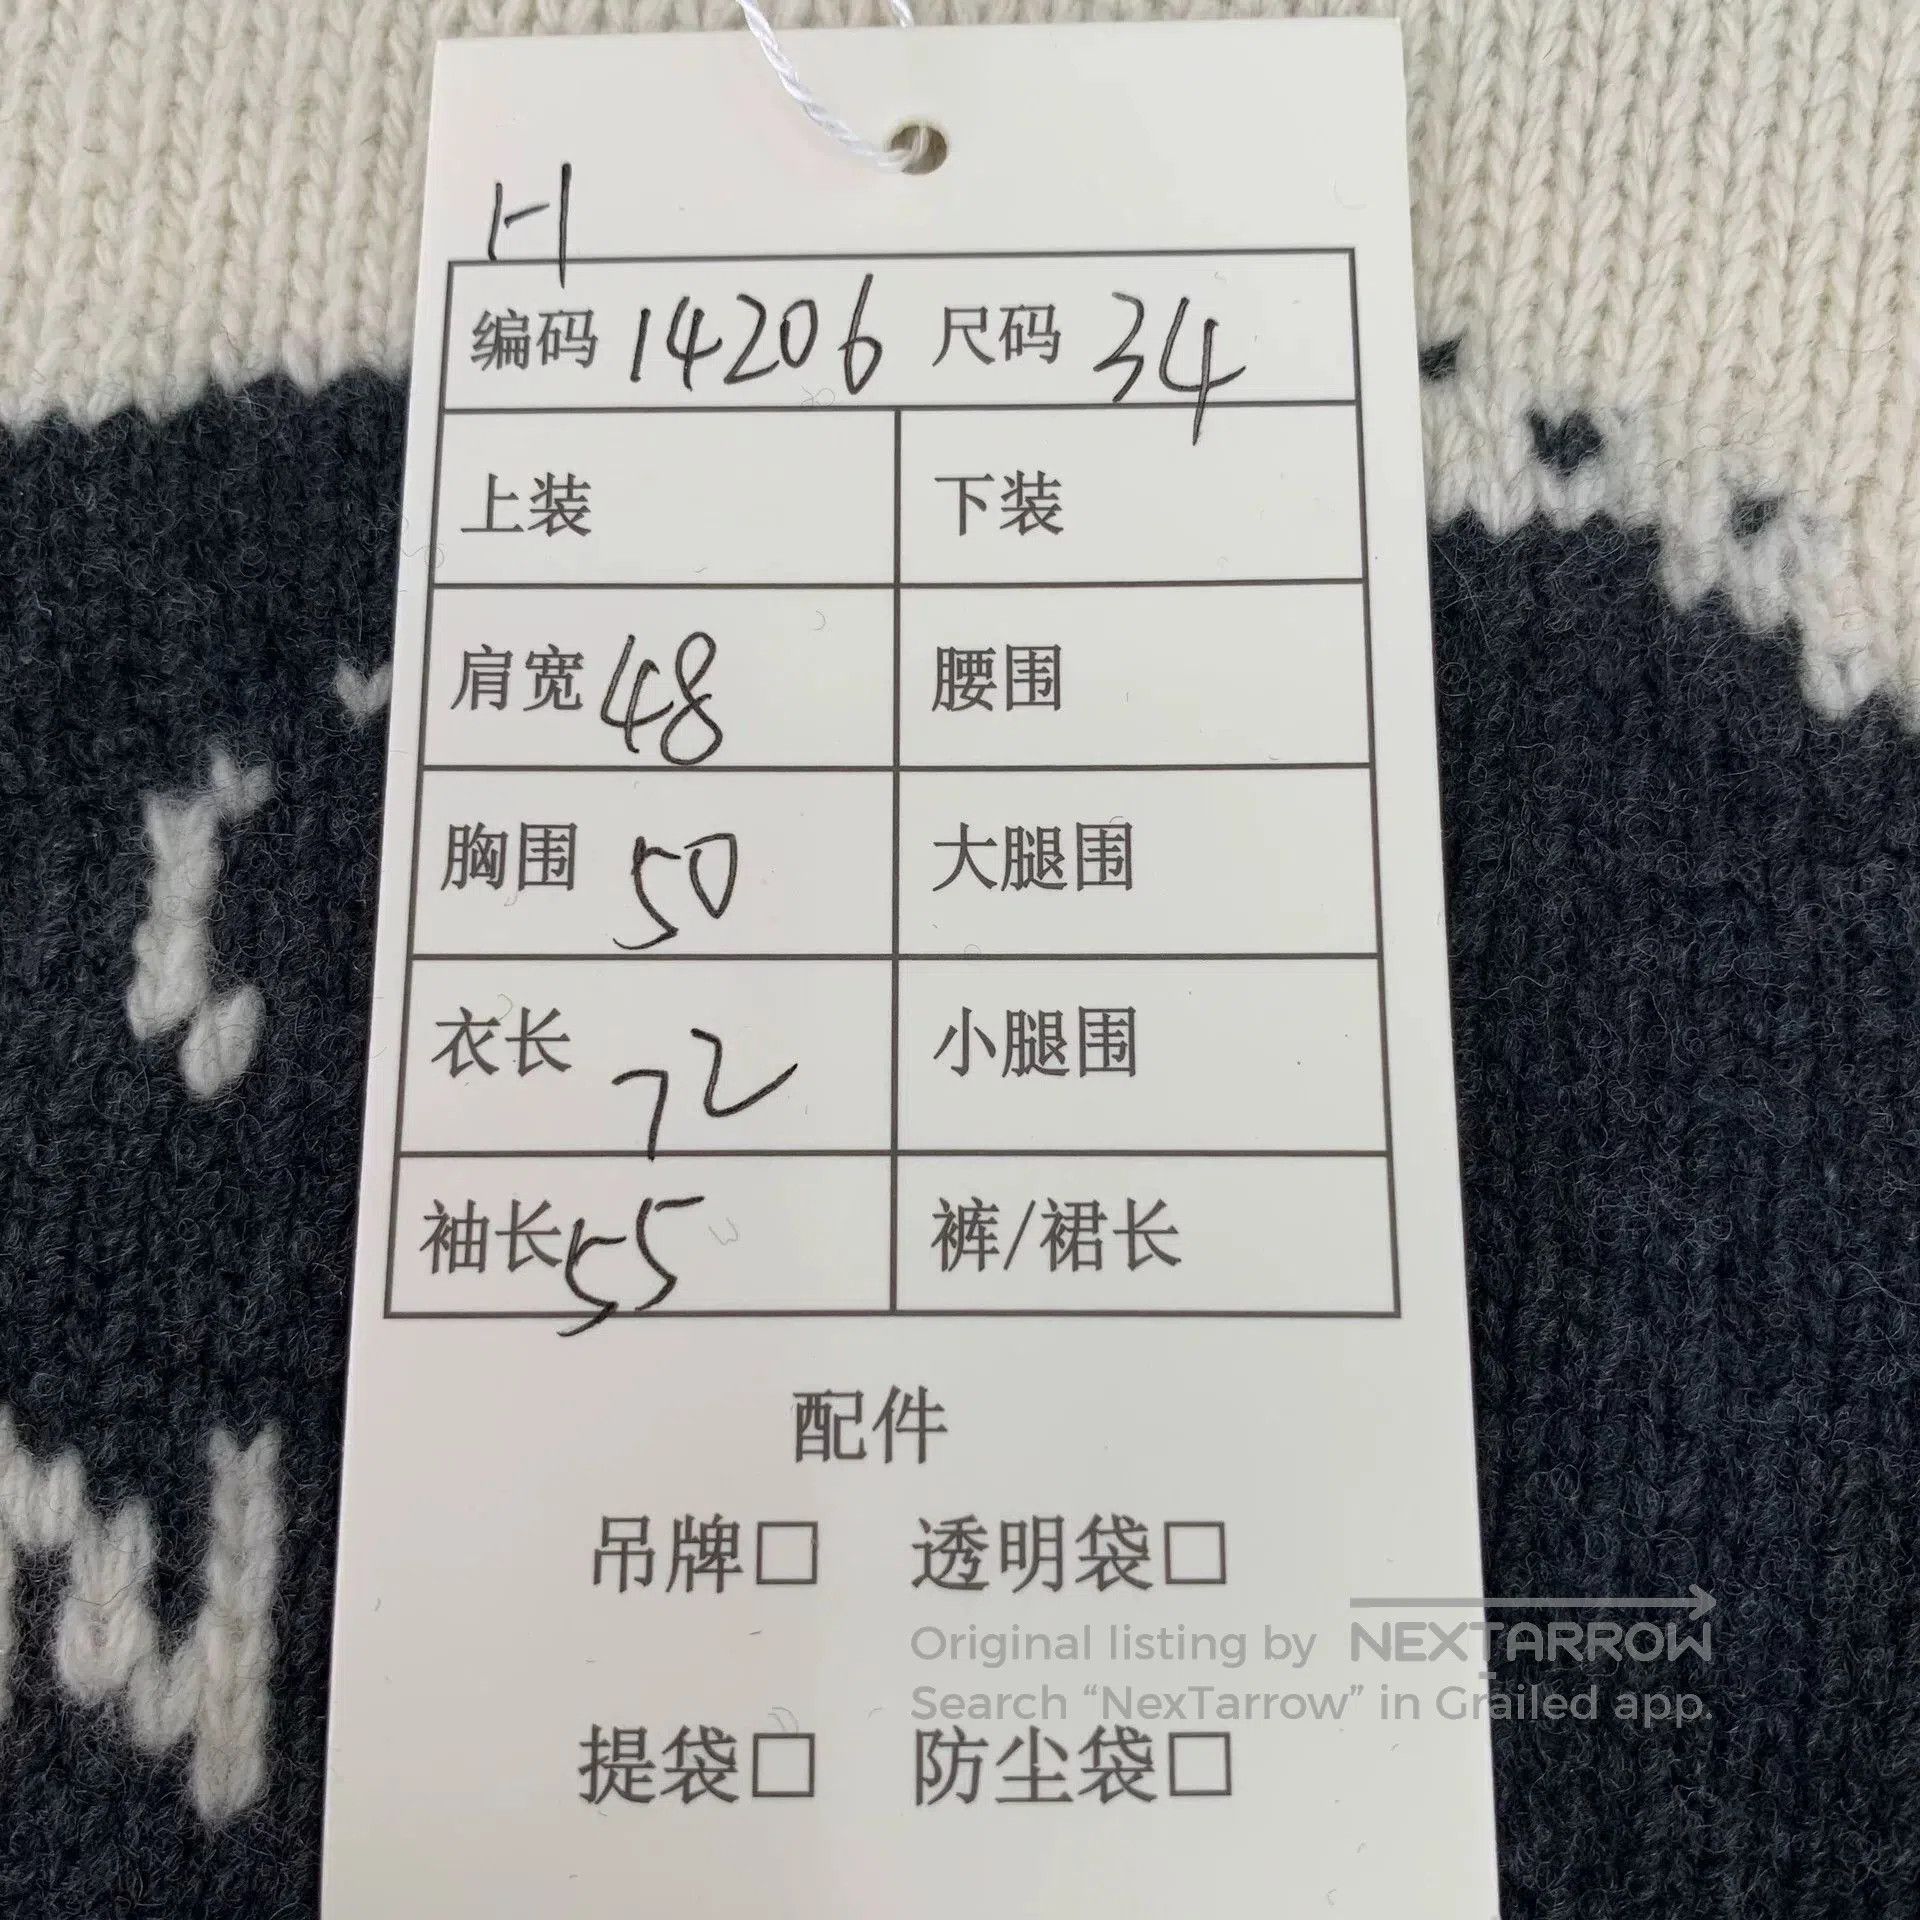 H
编码 14206 尺码 34
上装 下装
肩宽 48 腰围
胸围 50 大腿围
衣长 72 小腿围
袖长 55 裤/裙长
配件
吊牌□ 透明袋□
Original listing by NEXTARROW
Search “NexTarrow” in Grailed app.
提袋□ 防尘袋□